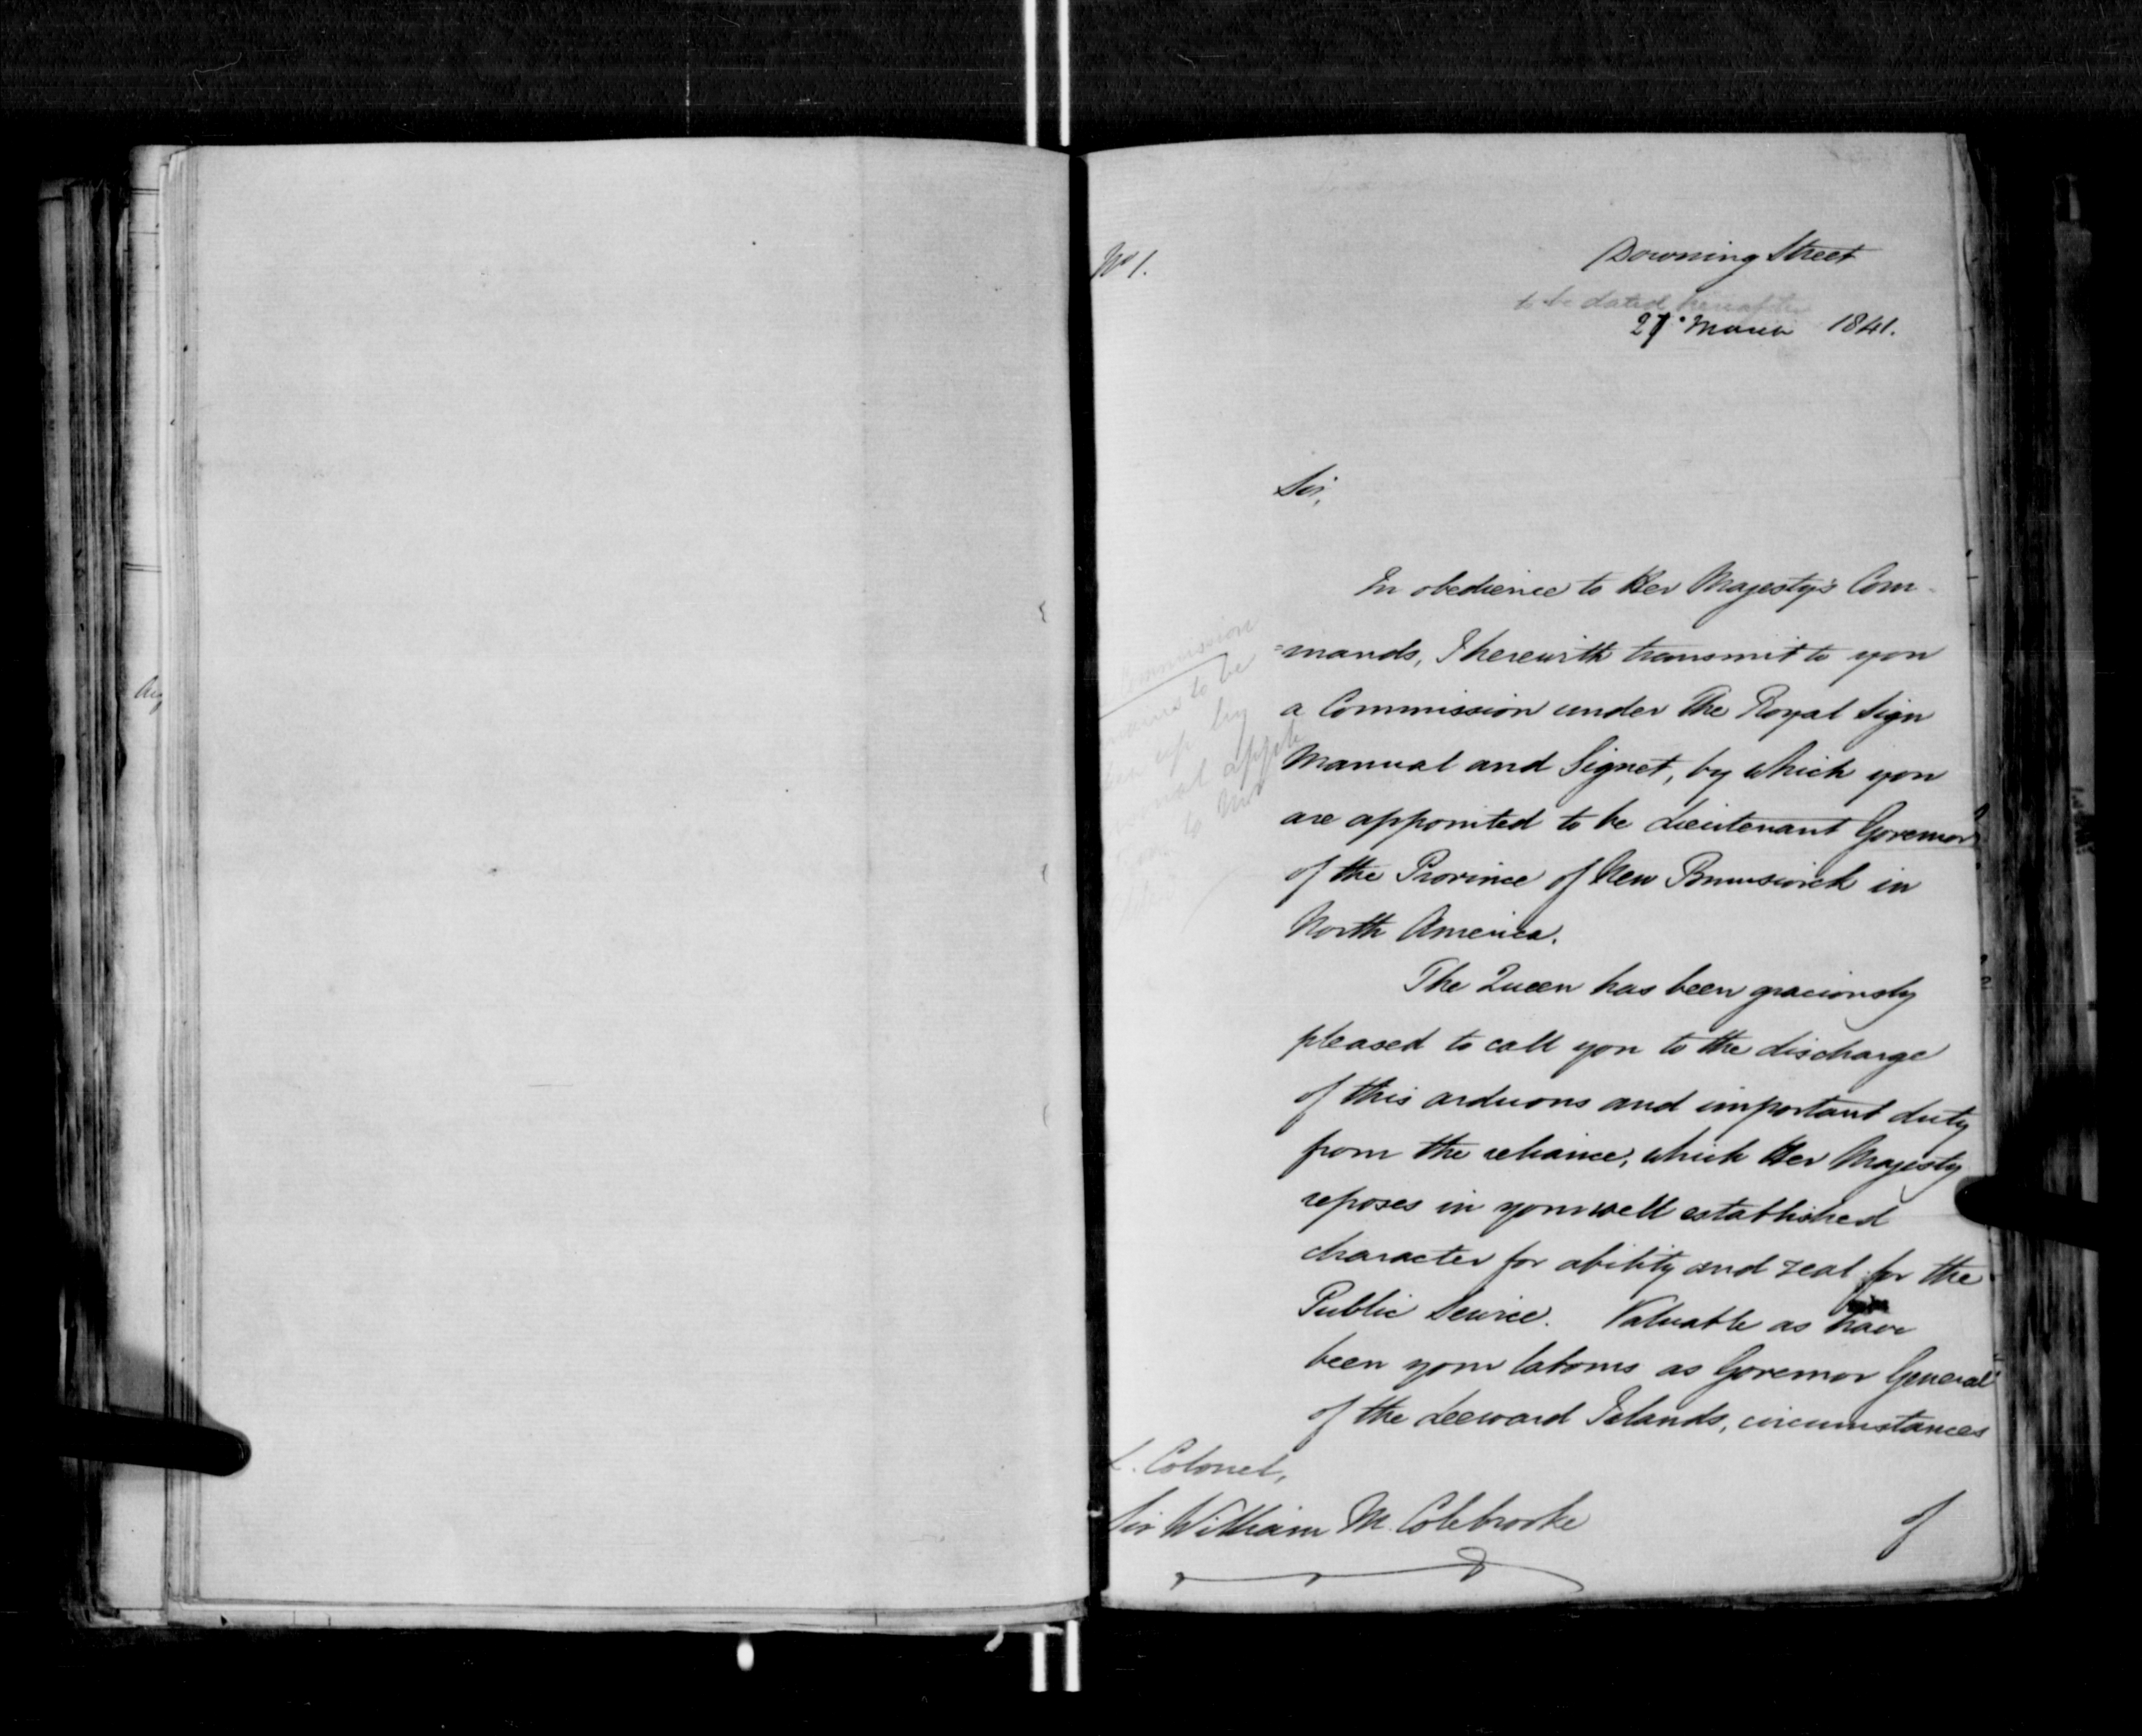 No 1.
Downing Street
to be dated hereafter
27 March 1841.
Sir,
In obedience to Her Majesty's Com-
=mands, I herewith transmit to you
a Commission under the Royal Sign
Manual and Signet, by which you
are appointed to be Lieutenant Governor
of the Province of New Brunswick in
North America.
The Queen has been graciously
pleased to call you to the discharge
of this arduous and important duty
from the reliance, which Her Majesty
reposes in your well established
character for ability and zeal for the
Public Service. Valuable as have
been your labours as Governor General
of the Leeward Islands, circumstances
L. Colonel,
Sir William M. Colebrooke
of
Commission
to be
by
to